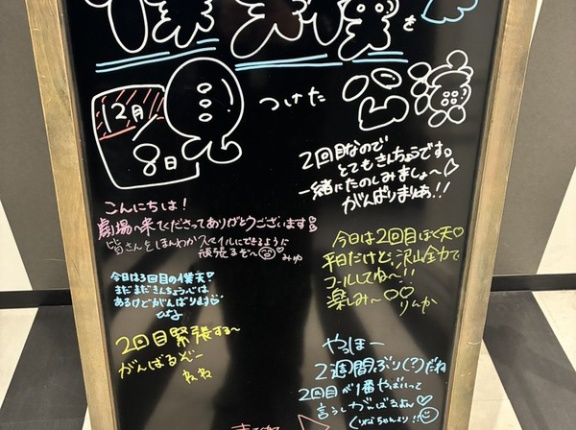 僕天僕を
つけた
12月
8日
2回目なので
とてもきんちょうです。
一緒にたのしみましょ〜♡
がんばりまぁ!!
こんにちは!
劇場へ来てくださってありがとうございます
皆さんをほんわかスマイルにできるように
頑張るぞ〜 みゆ
今日は2回目ぼく天♡
平日だけど、沢山全力で
コールしてね〜!!
楽しみ〜♡♡
りんか
今日は3回目の僕天!
まだまだきんちょうは
あるけどがんばります
ひな
2回目緊張する〜
がんばるぞー
ねね
やっほー
2週間ぶり(?)だね
2回目が1番やばいって
言うしがんばるよん♡
くりなちゃんより!!